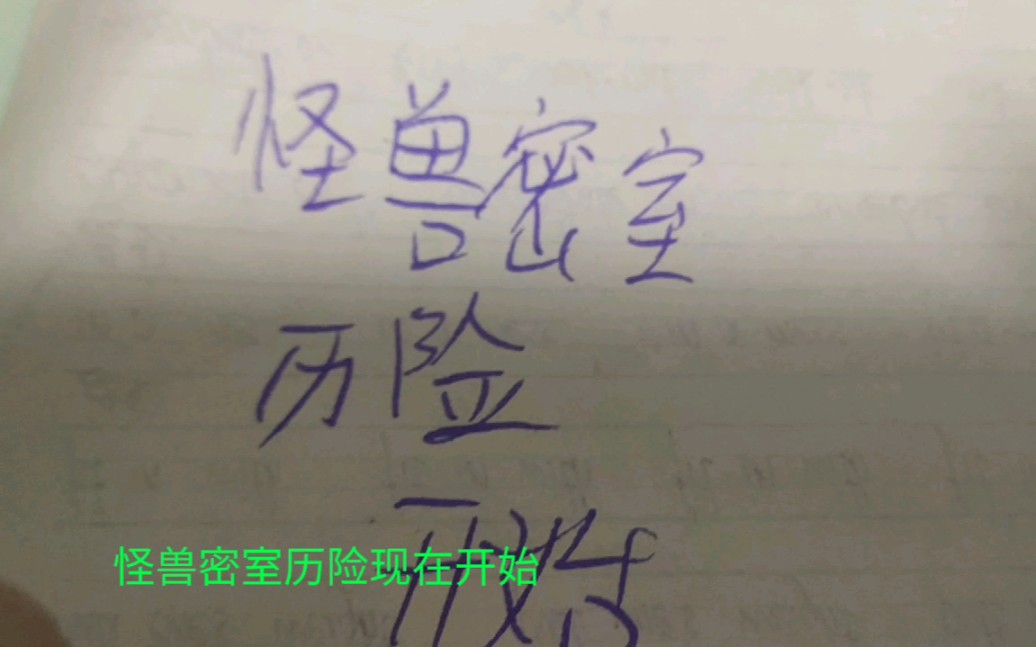 怪兽密室
历险
开始
怪兽密室历险现在开始